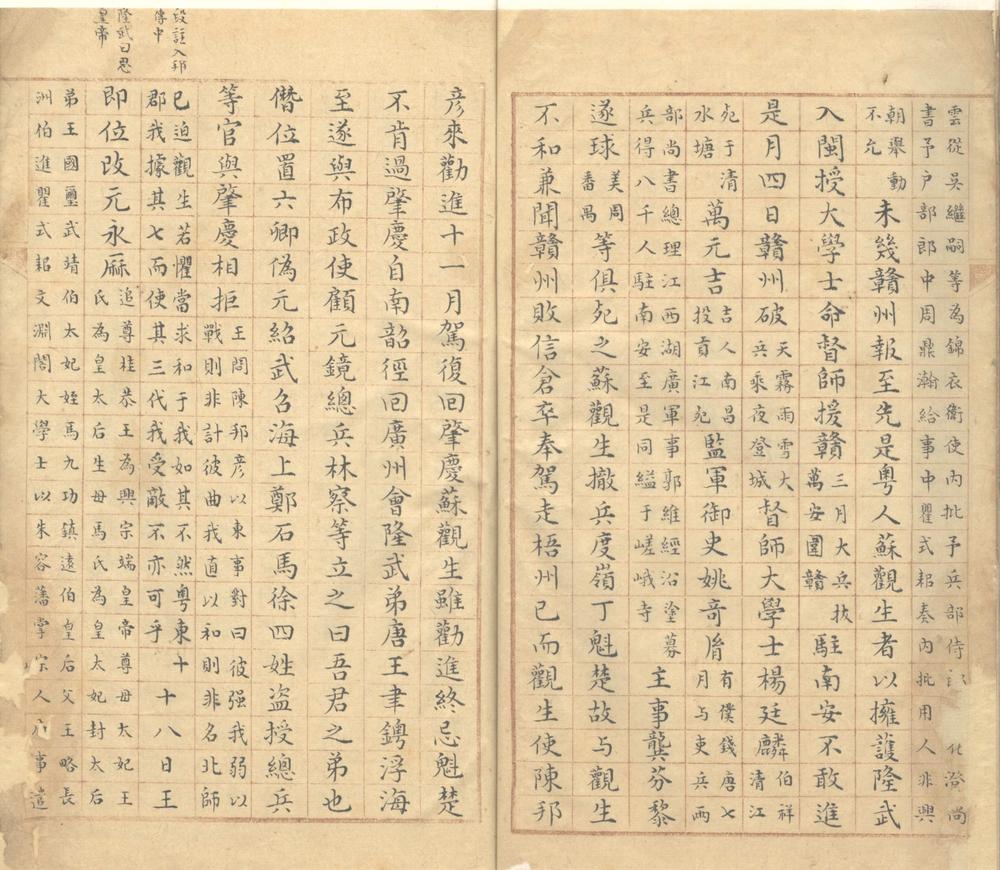 雲從吳繼嗣等為錦衣衛使內批予兵部侍化澄尚
書予戶部郎中周鼎瀚給事中瞿式耜奏內批用人非興
朝舉動
不允
未幾贛州報至先是粵人蘇觀生者以擁護隆武
入閩授大學士命督師援贛
三月大兵拔
萬安圍贛
駐南安不敢進
是月四日贛州破
天霧雨雪大
兵乘夜登城
督師大學士楊廷麟
伯祥
清江
死于清
水塘
萬元吉
吉人南昌
投貢江死
監軍御史姚奇胤
有僕錢唐七
月与吏兵兩
部尚書總理江西湖廣軍事郭維經沿塗募
兵得八千人駐南安至是同縊于嵯峨寺
主事龔芬黎
遂球
美周
番禺
等俱死之蘇觀生撤兵度嶺丁魁楚故与觀生
不和兼聞贛州敗信倉卒奉駕走梧州已而觀生使陳邦
彦來勸進十一月駕復回肇慶蘇觀生雖勸進終忌魁楚
不肯過肇慶自南韶徑回廣州會隆武弟唐王聿鐭浮海
至遂與布政使顧元鏡總兵林察等立之曰吾君之弟也
僭位置六卿偽元紹武召海上鄭石馬徐四姓盜授總兵
等官與肇慶相拒
王問陳邦彦以東事對曰彼强我弱以
戰則非計彼曲我直以和則非名北師
已迫觀生若懼當求和于我如其不然粵東十
郡我據其七而使其三代我受敵不亦可乎
十八日王
即位改元永厤
追尊桂恭王為興宗端皇帝尊母太妃王
氏為皇太后生母馬氏為皇太妃封太后
弟王國璽武靖伯太妃姪馬九功鎮遠伯皇后父王略長
洲伯進瞿式耜文淵閣大學士以朱容藩掌宗人府事遣
段註入邦
傳中
隆武曰思
皇帝